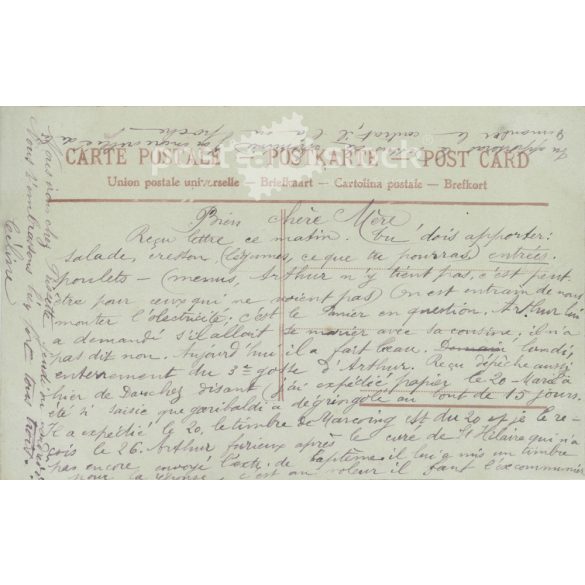 CARTE POSTALE — POSTKARTE — POST CARD
Union postale universelle — Briefkaart — Cartolina postale — Brefkort
Bien chère Mère
Reçu lettre ce matin. Tu dois apporter:
salade, cresson (légumes, ce que tu pourras) entrées.
poulets — (menus, Arthur n'y tient pas, c'est peut
être pour ceux qui ne voient pas) On est entrain de nous
monter l'électricité. c'est le en question. Arthur lui
a demandé s'il allait se marier avec sa cousine, il n'a
pas dit non. Aujourd'hui il a fait beau. Demain lundi,
enterrement du 3e gosse d'Arthur. Reçu dépêche aussi
hier de disant (J'ai expédié papier le 20 — Mara a
été si saisie que garibaldi a dégringolé au bout de 15 jours.
Il a expédié le 20, le timbre de Marcoing est du 20 et je le re-
çois le 26. Arthur furieux après le curé de St Hilaire qui n'a
pas encore envoyé l'acte de baptême. il lui a mis un timbre
pour la réponse c'est un voleur il faut l'excommunier
Tu apporteras
contrat, il
proche
Nous irons chez
Nous t'embrassons bien fort tous trois.
Céline